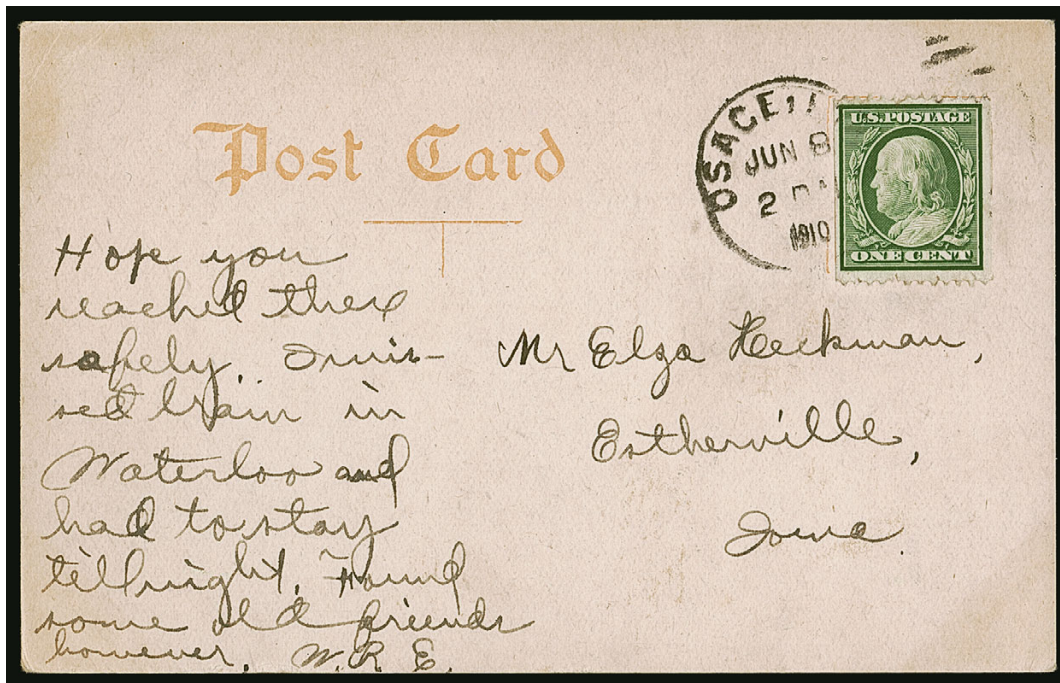 Post Card
OSAGE, I
JUN 8
2 P
1910
U.S. POSTAGE
ONE CENT
Hope you
reached there
safely. I mis-
sed train in
Waterloo and
had to stay
till night. Found
some old friends
however. W. R. E.
Mr Elza Heckman,
Estherville,
Iowa.